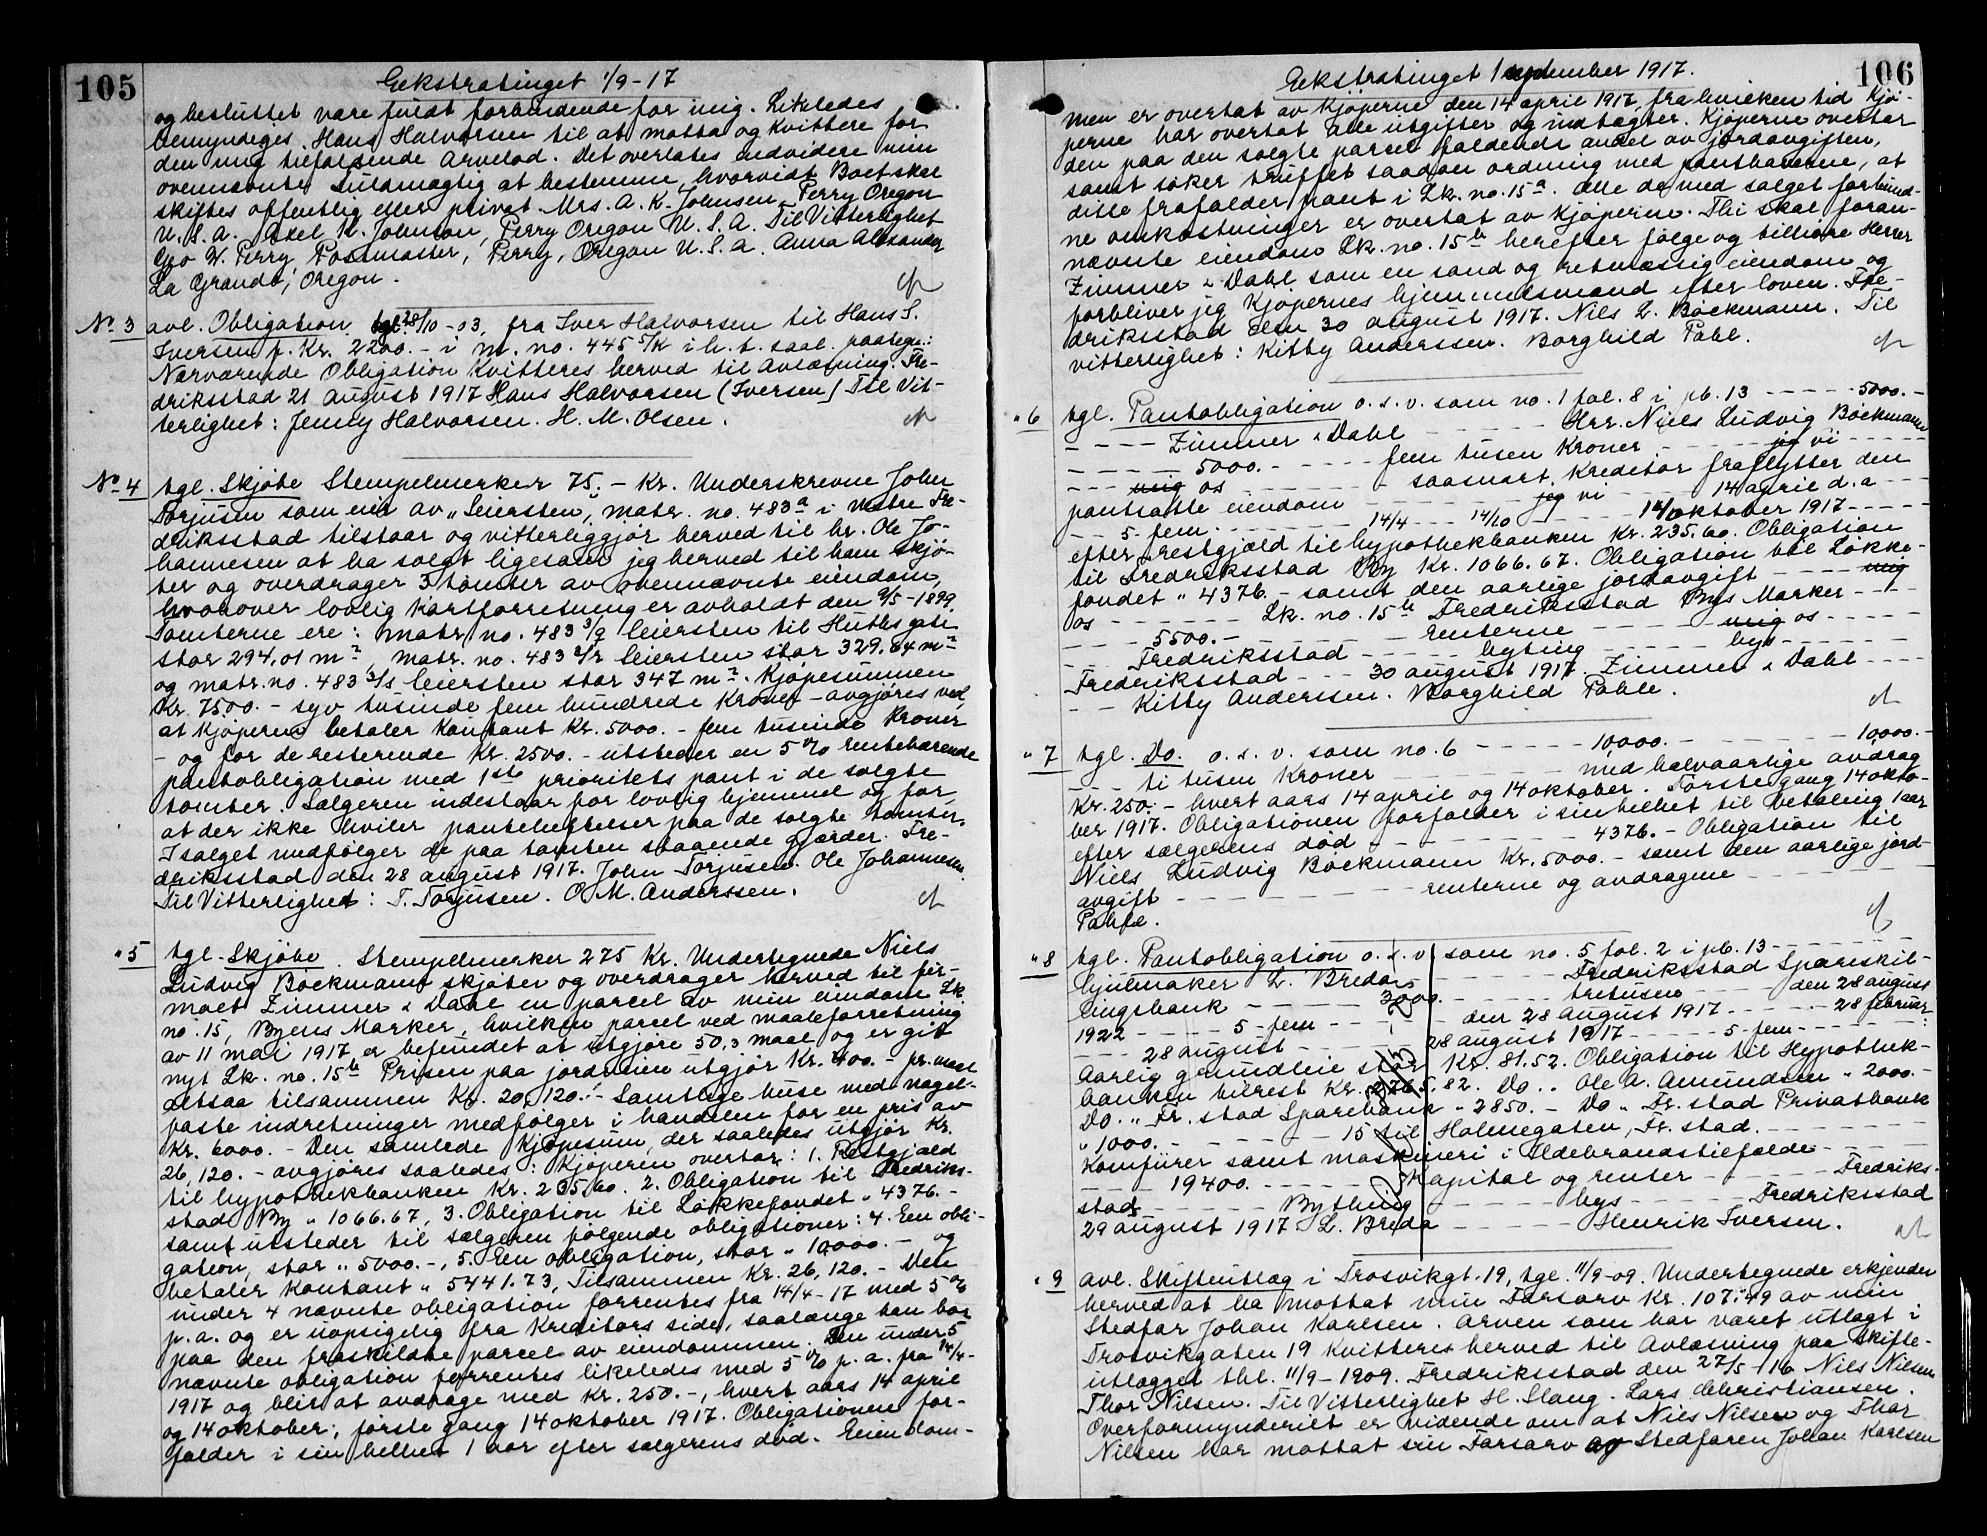 105
Eekstratinget 1/9-17
og besluttet være fuldt forbindende for mig. Likeledes
bemyndiges Hans Halvorsen til at motta og kvittere for
den mig tilfaldende arvelod. Det overlates endvidere min
ovennævnte fuldmægtig at bestemme hvorvidt Boet skal
skiftes offentlig eller privat. Mrs. A. K. Johnsen, Perry Oregon
U. S. A. Axel K. Johnson, Perry Oregon U. S. A. Til Vitterlighet
Geo W. Perry Postmaster, Perry, Oregon U. S. A. Anna Alexander
La Grande, Oregon.
No. 3 avl. Obligation, tgl. 28/10-03, fra Iver Halvorsen til Hans S.
Iversen f. Kr. 2200.- i m. no. 445 5/K i h. t. saal. paategn.:
Nærværende Obligation kvitteres herved til Avlæsning. Fre-
driksstad 21 august 1917 Hans Halvorsen (Iversen) Til Vit-
terlighet: Jenny Halvorsen. H. M. Olsen.
No. 4 tgl. Skjøte Stempelmerker 75.- Kr. Underskrevne John
Torjusen som eier av "Leiersten", matr. no. 483a i Vestre Fre-
driksstad tilstaar og vitterliggjør herved til hr. Ole Jo-
hannesen at ha solgt ligesom jeg herved til ham skjø-
ter og overdrager 3 tomter av ovennævnte eiendom,
hvorover lovlig kartforretning er avholdt den 9/5-1899.
Tomterne ere: matr. no. 483 3/q Leiersten til Huths gate
stor 294,01 m2, matr. no. 483 2/r Leiersten stor 329.84 m2
og matr. no. 483 3/s Leiersten stor 347 m2. Kjøpesummen
Kr. 7500.- syv tusinde fem hundrede Kroner - avgjøres ved
at kjøperen betaler kontant Kr. 5000.- fem tusinde kroner
- og for de resterende Kr. 2500.- utsteder en 5 % rentebærende
pantobligation med 1ste prioritets pant i de solgte
tomter. Sælgeren indestaar for lovlig hjemmel og for,
at der ikke hviler pantehæftelser paa de solgte tomter.
I salget medfølger de paa tomten staaende gjærder. Fre-
driksstad den 28 august 1917. John Torjusen. Ole Johannesen.
Til Vitterlighet: T. Torjusen. O. M. Anderssen.
" 5 tgl. Skjøte. Stempelmerker 275 Kr. Undertegnede Niels
Ludvig Bøckmann skjøter og overdrager herved til fir-
maet Zimmer & Dahl en parcel av min eiendom Lk
no. 15, Byens Marker, hvilken parcel ved maaleforretning
av 11 mai 1917 er befundet at utgjøre 50,3 maal og er git
nyt Lk. no. 15b. Prisen paa jordveien utgjør Kr. 400.- pr. maal
altsaa tilsammen Kr. 20,120.- Samtlige huse med nagel-
faste indretninger medfølger i handelen for en pris av
Kr. 6000.- Den samlede Kjøpesum, der saaledes utgjør Kr.
26,120.- avgjøres saaledes: Kjøperen overtar: 1. Restgjæld
til hypothekbanken Kr. 235.60. 2. Obligation til Fredriks-
stad By " 1066.67, 3. Obligation til Løkkefondet " 4376.-
samt utsteder til sælgeren følgende obligationer: 4. Een obli-
gation, stor " 5000.-, 5. Een obligation, stor " 10,000.- og
betaler kontant " 5441.73, Tilsammen Kr. 26,120.- Den
under 4 nævnte obligation forrentes fra 14/4-17 med 5 %
p. a. og er uopsigelig fra Kreditors side, saalænge han bor
paa den fraskildte parcel av eiendommen. Den under 5
nævnte obligation forrentes likeledes med 5 % p. a. fra 14/4-
1917 og blir at avdrage med Kr. 250.-, hvert aars 14 april
og 14 oktober, første gang 14 oktober 1917. Obligationen for-
falder i sin helhet 1 aar efter sælgerens død. Eiendom-
106
Eekstratinget 1 september 1917.
men er overtat av kjøperne den 14 april 1917, fra hvilken tid kjø-
perne har overtat alle utgifter og indtægter. Kjøperne overtar
den paa den solgte parcel faldende andel av jordavgiften,
samt søker truffet saadan ordning med panthaverne, at
disse frafalder pant i Lk. no. 15a. Alle de med salget forbund-
ne omkostninger er overtat av kjøperne. Thi skal foran-
nævnte eiendom Lk. no. 15b herefter følge og tilhøre Herrer
Zimmer & Dahl som en sand og retmæssig eiendom og
forbliver jeg kjøpernes hjemmelsmand efter loven. Fre-
driksstad den 30 august 1917. Niels L. Bøckmann. Til
vitterlighet: Kitty Anderssen. Borghild Pahl.
" 6 tgl. Pantobligation o. s. v. som no. 1 fol. 8 i pb. 13 - - - - 5000.-
- - - Zimmer & Dahl - - - - Hrr. Niels Ludvig Bøckmann
- - - - 5000.- - - - - fem tusen Kroner - - - - jeg vi - - - -
- - - mig os - - - - saasnart Kreditor fraflytter den
pantsatte eiendom - - - - jeg vi - - - 14 april d. a - - -
- - 5 - fem. - - - - 14/4 - - - 14/10 - - - 14 oktober 1917 - - - -
efter restgjæld til hypothekbanken Kr. 235.60. Obligation
til Fredriksstad By Kr. 1066.67. Obligation til Løkke-
fondet " 4376.- samt den aarlige jordavgift - - - - mig
os - - - - Lk. no. 15b Fredriksstad Bys Marker - - -
- - - 5500.- - - - - renterne - - - - mig os - - - -
- - Fredriksstad - - - - byting - - - - bys - - - -
Frederiksstad - - - 30 august 1917. Zimmer & Dahl - - - -
- - Kitty Anderssen. Borghild Pahle.
" 7 tgl. Do. o. s. v. som no. 6 - - - - 10000.- - - - - 10,000.-
- - - ti tusen Kroner - - - - med halvaarlige avdrag
Kr. 250.- hvert aars 14 april og 14 oktober. Første gang 14 okto-
ber 1917. Obligationen forfalder i sin helhet til betaling 1 aar
efter sælgerens død - - - - 4376.- Obligation til
Niels Ludvig Bøckmann Kr. 5000.- samt den aarlige jord-
avgift - - - - renterne og avdragene - - - -
Pahle.
" 8 tgl. Pantobligation o. s. v. som no. 5 fol. 2 i pb. 13 - - - -
hjulmaker L. Breda - - - - Fredriksstad Spareskil-
lingsbank - - - - 3000.- - - - tretusen - - - - den 28 august
1922 - - - - 5 - fem - - - - den 28 august 1917 - - - - 28 februar
- - - 28 august - - - - 28 august 1917 - - - - 5 - fem - - - -
Aarlig grundleie stor Kr. 81.52. Obligation til Hypothek-
banken tilrest Kr. 2765,82. Do. " Ole A. Amundsen " 2000.-
Do. " Fr. stad Sparebank " 2850.- Do " Fr. stad Privatbank
" 1000.- - - - - 15 til Holmegaten, Fr. stad. - - - -
Komfürer samt maskineri i Ildebrandstilfælde - - - -
- - - 19400.- - - - - Kapital og renter - - - - Fredriks-
stad - - - - Bything - - - - bys - - - - Fredriksstad
29 august 1917 L. Breda - - - - Henrik Iversen.
" 9 avl. Skifteutlæg i Trosvikgt. 19, tgl. 11/9-09. Undertegnede erkjender
herved at ha mottat min Farsarv Kr. 107.49 av min
Stedfar Johan Karlsen. Arven som har været utlagt i
Trosvikgaten 19 kvitteres herved til Avlæsning paa skifte-
utlægget thl. 11/9-1909. Fredriksstad den 27/5-16 Nils Nilsen
Thor Nilsen. Til Vitterlighet H. Slang. Lars Christiansen.
Overformynderiet er vidende om at Nils Nilsen og Thor
Nilsen har mottat sin Farsarv av Stedfaren Johan Karlsen